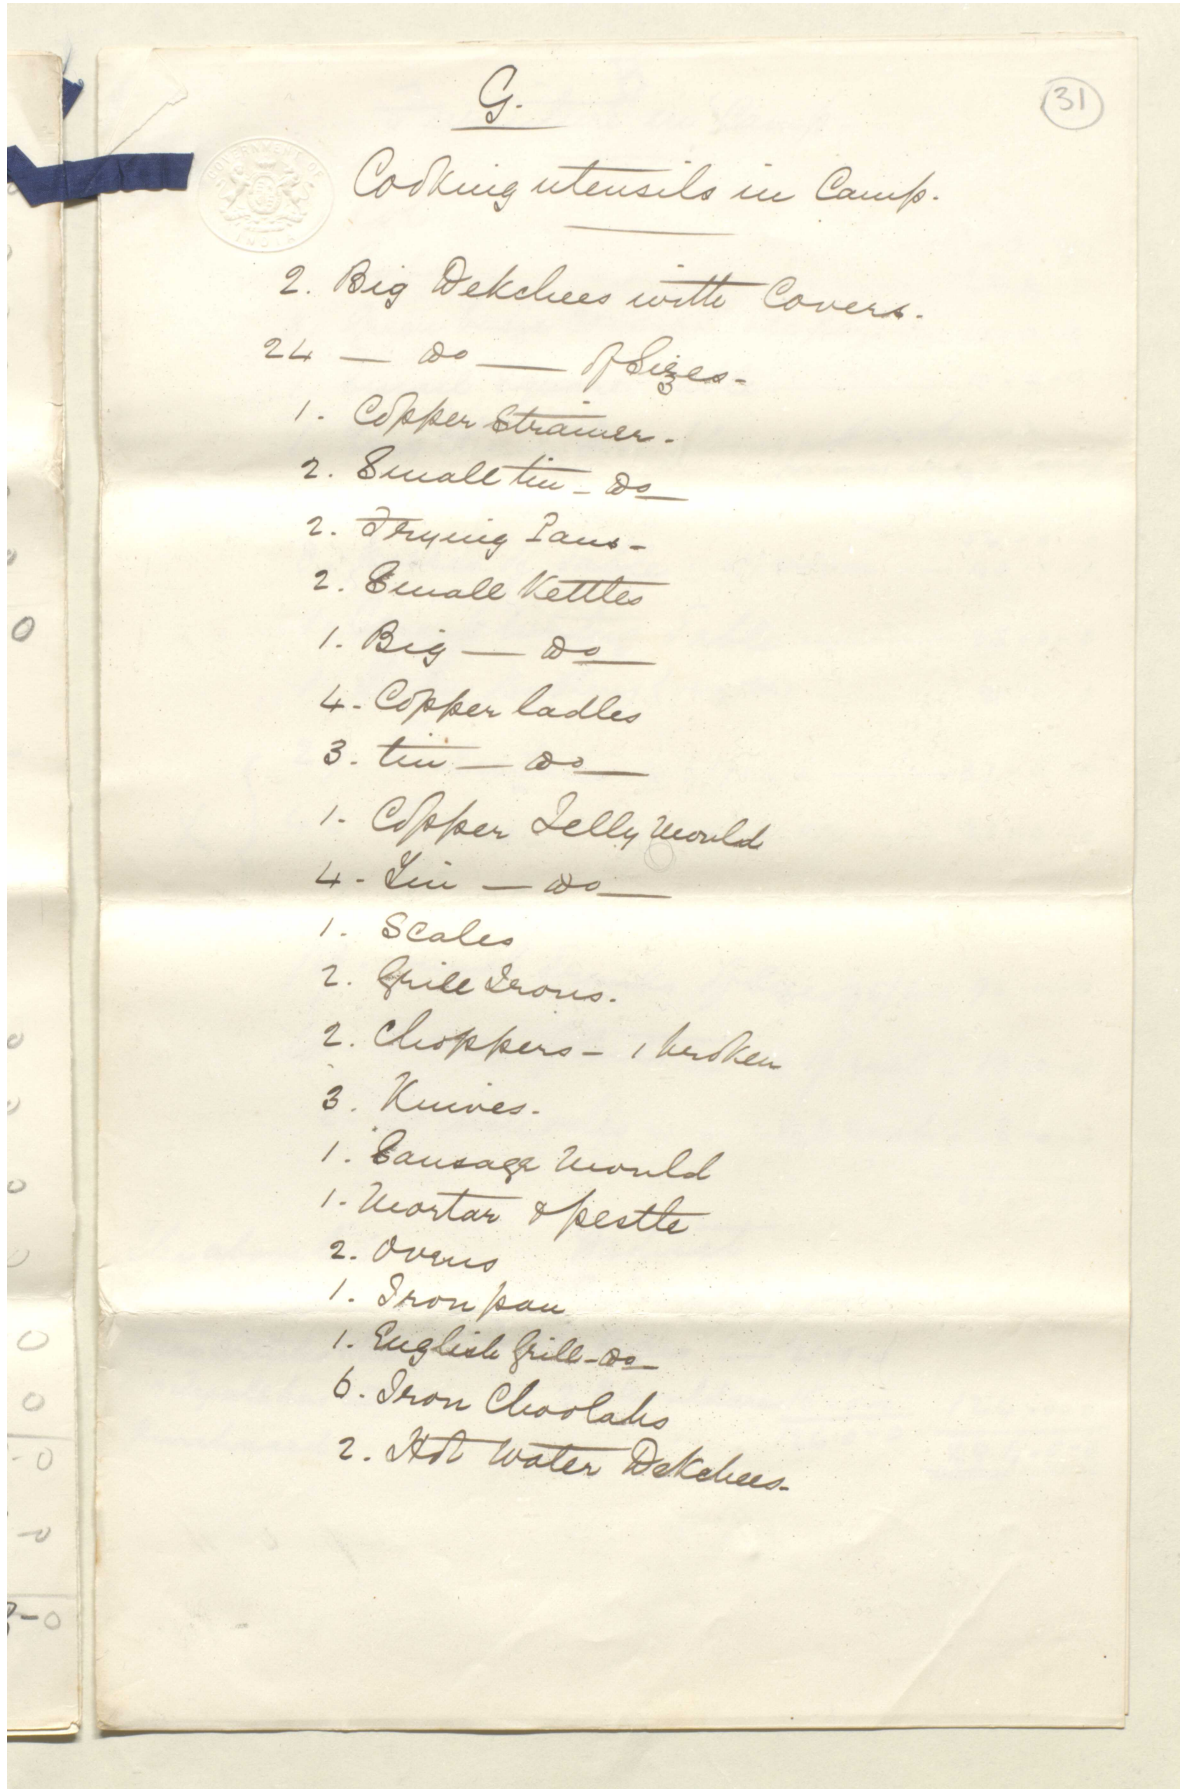 G.
31
GOVERNMENT OF
INDIA
Cooking utensils in Camp.
2. Big Dekchees with Covers.
24 — Do — of Sizes-
1. Copper Strainer.
2. Small tin - Do
2. Frying Pans-
2. Small Kettles
1. Big — Do
4. Copper ladles
3. tin — Do
1. Copper Jelly Mould
4. Tin — Do
1. Scales
2. Grill Irons.
2. Choppers - 1 broken
3. Knives.
1. Sausage Mould
1. Mortar & pestle
2. Ovens
1. Iron pan
1. English Grill - Do
6. Iron Choolahs
2. Hot Water Dekchees.